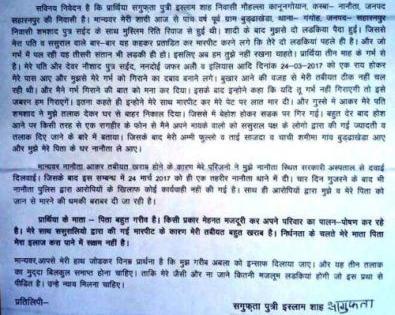 सविनय निवेदन है कि प्रार्थिया सगुफ्ता पुत्री इस्लाम शाह निवासी मौहल्ला कानूनगोयान, कस्बा– नानौता, जनपद
सहारनपुर की निवासी हैं। मान्यवर मेरी शादी आज से पांच वर्ष पूर्व ग्राम बुड्ढाखेडा, थाना– गंगोह, जनपद– सहारनपुर
निवासी शमशाद पुत्र सईद के साथ मुस्लिम रिति रिवाज से हुई थी। शादी के बाद मुझसे दो लडकियां पैदा हुई। जिससे
मेरा पति व ससुराल वाले बार–बार यह कहकर प्रताडित कर मारपीट करने लगे कि तेरे दो लडकियां पहले ही है। और जो
गर्भ में पल रही वह तीसरी संतान भी लडकी ही है। इसलिए अब हम तुझे नहीं रखना चाहते। प्रार्थिया तीन माह के गर्भ से
है। मेरे पति और देवर नौशाद पुत्र सईद, ननदोई जफर अली व इलियास आदि दिनांक 24–03–2017 को एक राय होकर
मेरे पास आए और मुझसे मेरे गर्भ को गिराने का दबाव बनाने लगे। बुखार आने की वजह से मेरी तबीयत ठीक नहीं चल
रही थी। और मैने गर्भ गिराने की बात को मना कर दिया। इसके बाद इन्होने कहा कि यदि तू गर्भ नहीं गिराएगी तो इसे
जबरन हम गिराएगें। इतना कहते ही इन्होने मेरे साथ मारपीट कर मेरे पेट पर लात मार दी। और गुस्से में आकर मेरे पति
शमशाद ने मुझे तलाक देकर घर से बाहर निकाल दिया। जिससे मैं बेहोश होकर सडक पर गिर गई। बहुत देर बाद होश
आने पर किसी तरह से एक राहगीर के फोन से मैने अपने मायके वालो को ससुराल पक्ष के लोगो द्वारा की गई ज्यादती व
तलाक दिए जाने के बारे में बताया। जिसके बाद मेरी अम्मी फुल्लो व ताई साजदा व चाची शमीमा गांव बुड्ढाखेडा आए
और मुझे मेरे पिता के घर नानौता ले आए।
मान्यवर नानौता आकर तबीयत खराब होने के कारण मेरे परिजनो ने मुझे नानौता स्थित सरकारी अस्पताल से दवाई
दिलवाई। जिसके बाद इस सम्बन्ध में 24 मार्च 2017 को ही एक तहरीर नानौता थाने में दी। चार दिन गुजरने के बाद भी
नानौता पुलिस द्वारा आरोपियों के खिलाफ कोई कार्यवाही नहीं की गई है। साथ ही आरोपियों द्वारा मुझे व मेरे पिता को
जान से मारने की धमकी बराबर दी जा रही है।
प्रार्थिया के माता – पिता बहुत गरीब है। किसी प्रकार मेहनत मजदूरी कर अपने परिवार का पालन–पोषण कर रहे
है। मेरे साथ ससुरालियो द्वारा की गई मारपीट के कारण मेरी तबीयत बहुत खराब है। निर्धनता के चलते मेरे माता पिता
मेरा इलाज करा पाने में सक्षम नहीं है।
मान्यवर,आपसे मेरी हाथ जोडकर विनम्र प्रार्थना है कि मुझ गरीब अबला को इन्साफ दिलाया जाए। और यह तीन तलाक
का मुद्दा बिलकुल समाप्त होना चाहिए। ताकि मेरे जैसी और ना जाने कितनी मजलूम लडकियां होगी जो इस प्रथा से
पीडित है। उन्हे न्याय मिलना चाहिए।
प्रतिलिपि–
सगुफ्ता पुत्री इस्लाम शाह शगुफता